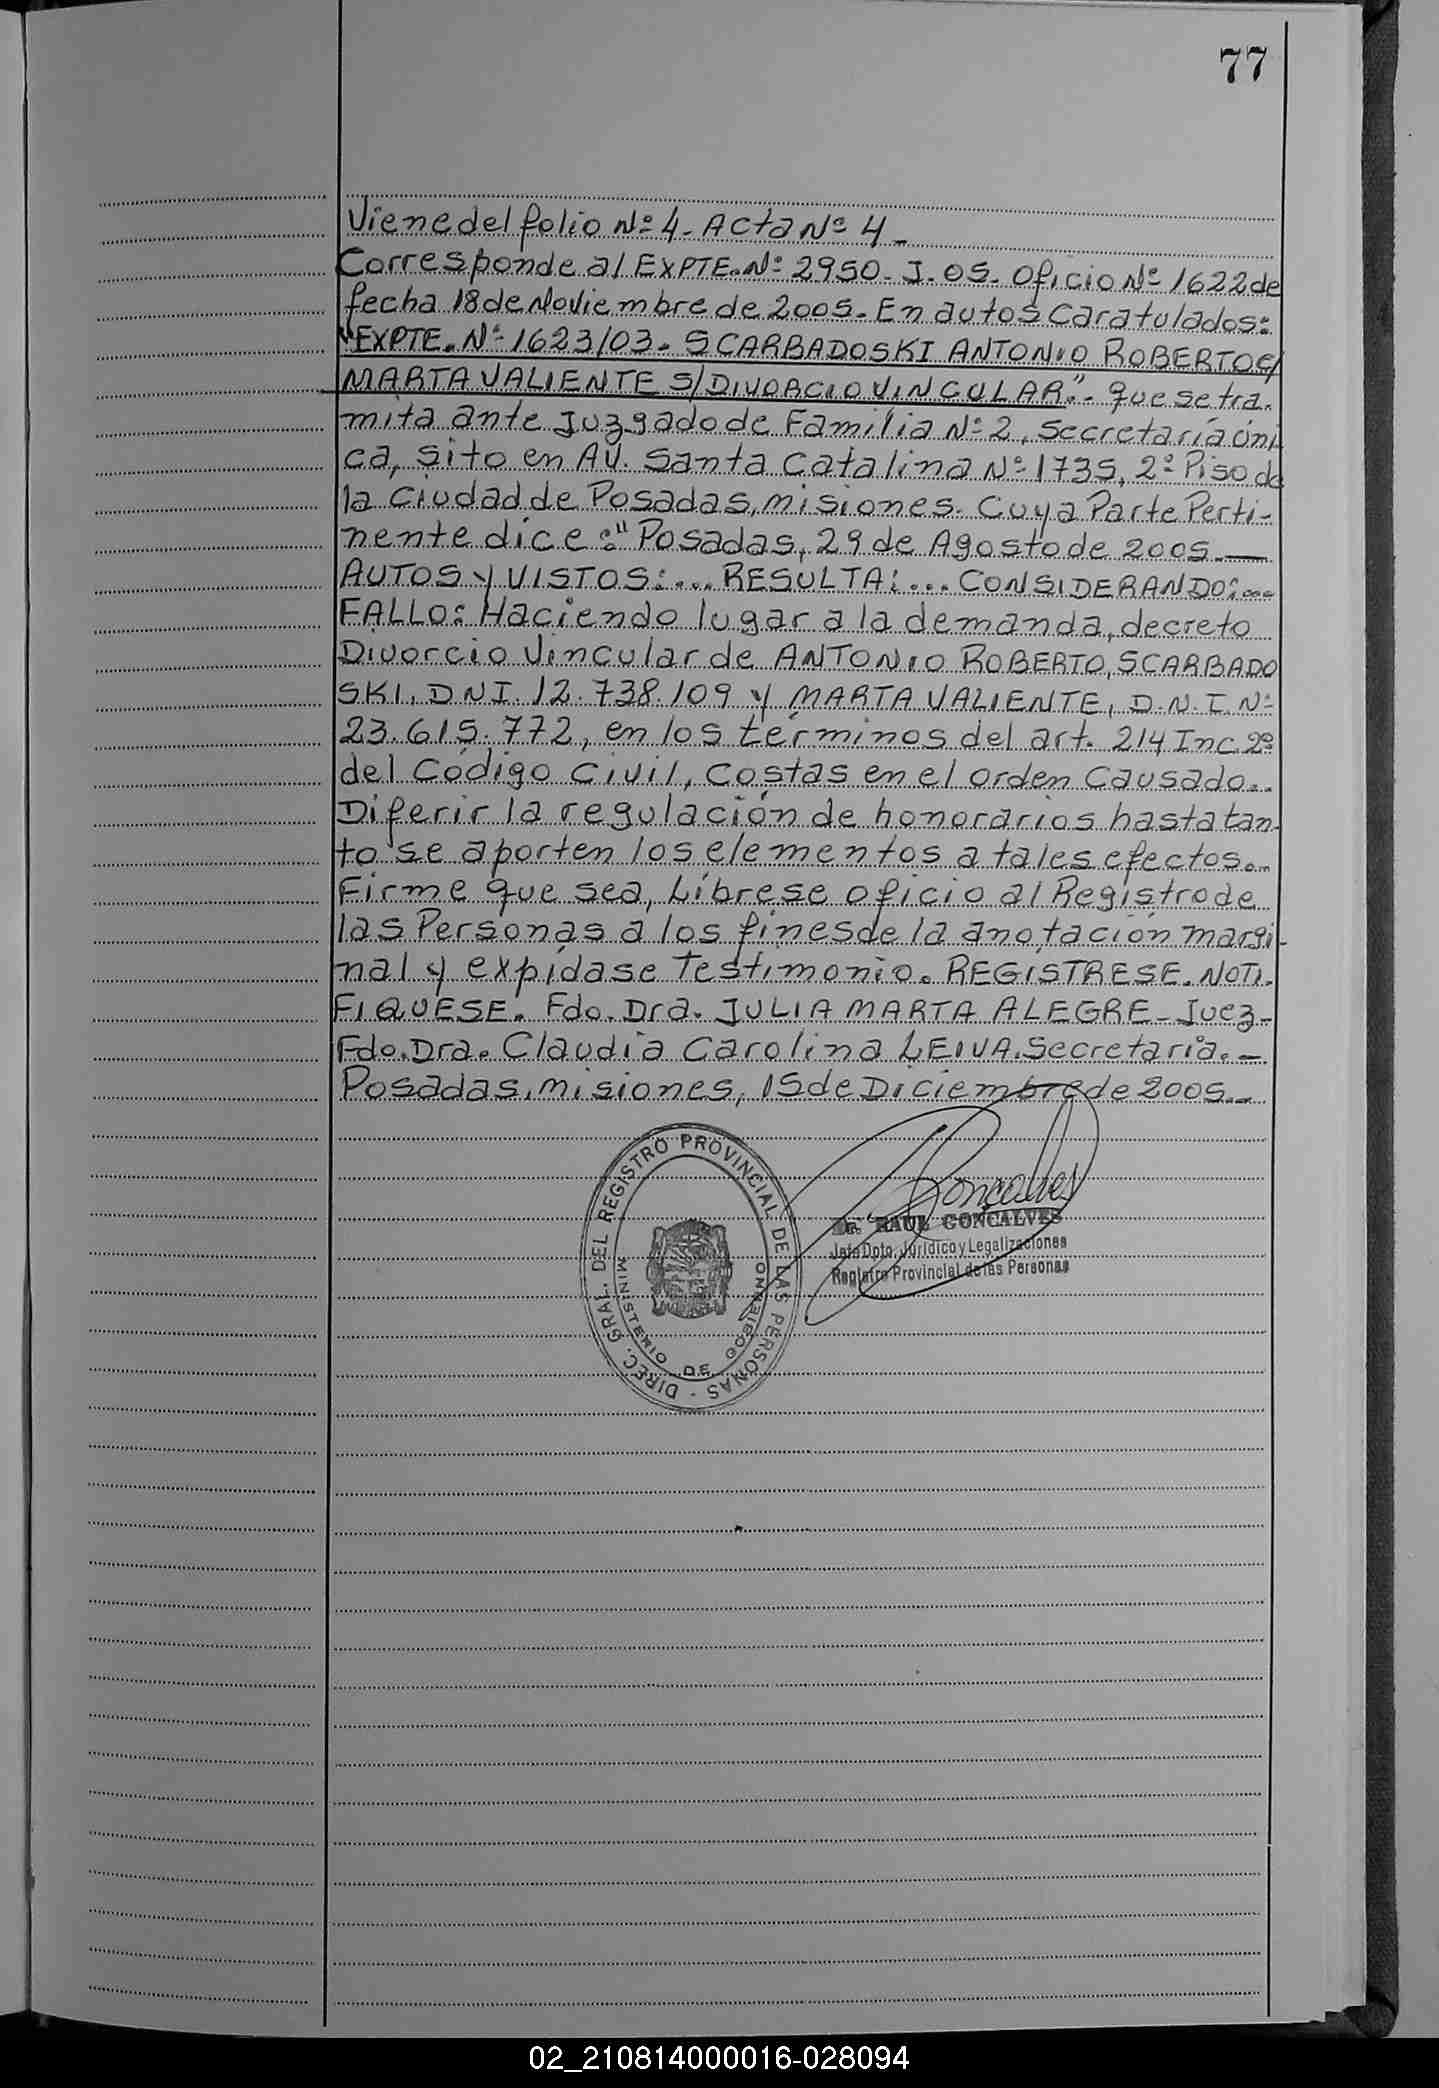 77
Viene del folio Nº 4 - Acta Nº 4 -
Corresponde al EXPTE. Nº 2950 - J - 05. Oficio Nº 1622 de
fecha 18 de Noviembre de 2005. En autos Caratulados:
"EXPTE. Nº 1623/03 - SCARBADOSKI ANTONIO ROBERTO C/
MARTA VALIENTE S/ DIVORCIO VINCULAR". - que se tra-
mita ante Juzgado de Familia Nº 2, Secretaría úni
ca, sito en AV. Santa Catalina Nº 1735, 2º Piso de
la Ciudad de Posadas, Misiones. Cuya Parte Perti-
nente dice: "Posadas, 29 de Agosto de 2005. —
AUTOS Y VISTOS: ... RESULTA: ... CONSIDERANDO: ...
FALLO: Haciendo lugar a la demanda, decreto
Divorcio Vincular de ANTONIO ROBERTO, SCARBADO
SKI, D.N.I. 12.738.109 y MARTA VALIENTE, D.N.I. Nº
23.615.772, en los términos del art. 214 Inc 2º
del Código Civil, Costas en el orden Causado..
Diferir la regulación de honorarios hasta tan-
to se aporten los elementos a tales efectos..
Firme que sea, Líbrese oficio al Registro de
las Personas a los fines de la anotación margi-
nal y expídase Testimonio. REGÍSTRESE. NOTI-
FIQUESE. Fdo. Dra. JULIA MARTA ALEGRE - Juez -
Fdo. Dra. Claudia Carolina LEIVA. Secretaria. -
Posadas, Misiones, 15 de Diciembre de 2005. -
DIREC. GRAL. DEL REGISTRO PROVINCIAL DE LAS PERSONAS -
MINISTERIO DE GOBIERNO
Gonçalves
Dr. RAUL GONCALVES
Jefe Dpto. Jurídico y Legalizaciones
Registro Provincial de las Personas
02_210814000016-028094